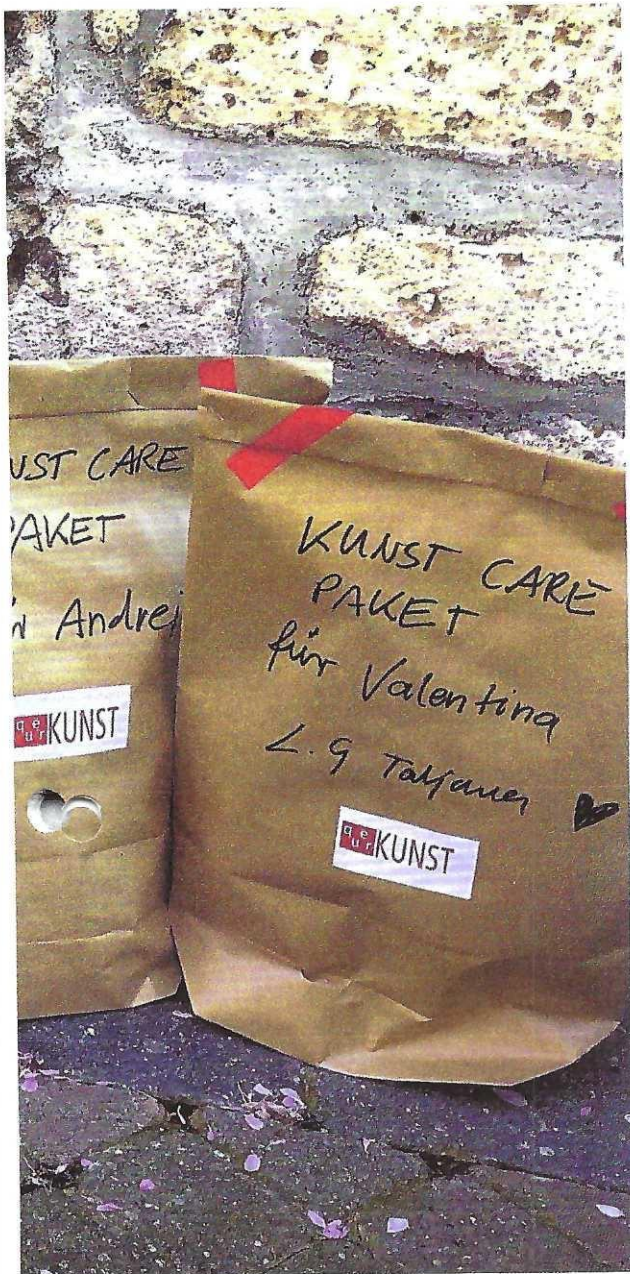 UNST CARE
PAKET
Andrej
qe
ur KUNST
KUNST CARE
PAKET
für Valentina
L.G Tatjana
qe
ur KUNST